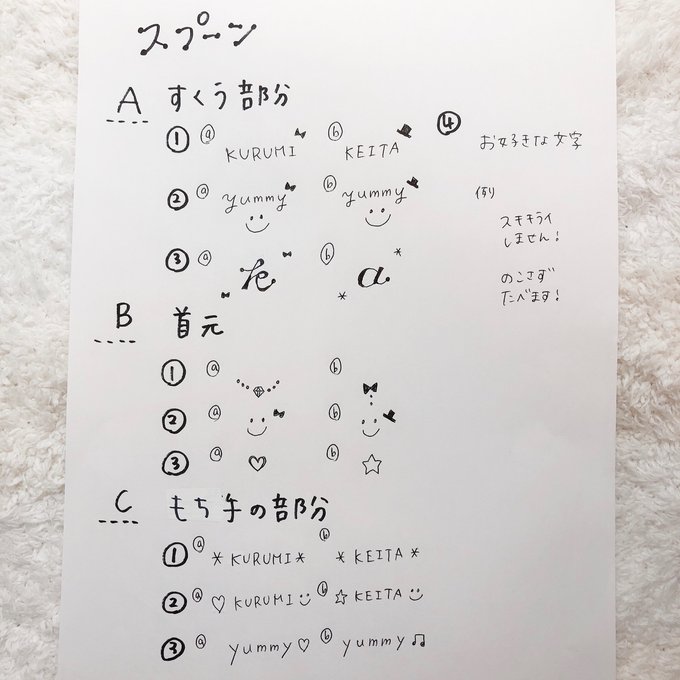 スプーン
A すくう部分
① ⓐ KURUMI ⓑ KEITA
② ⓐ yummy ⓑ yummy
③ ⓐ k ⓑ a
④ お好きな文字
例
スキキライ
しません!
のこさず
たべます!
B 首元
① ⓐ ⓑ
② ⓐ ⓑ
③ ⓐ ♡ ⓑ ☆
C もち手の部分
① ⓐ *KURUMI* ⓑ *KEITA*
② ⓐ ♡KURUMI ⓑ ☆KEITA
③ ⓐ yummy♡ ⓑ yummy♫